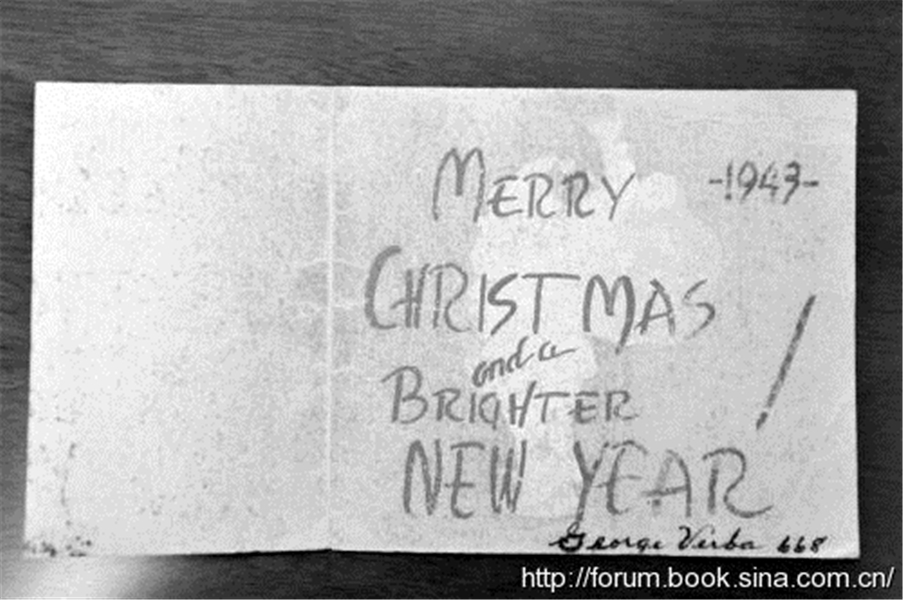 MERRY -1943-
CHRISTMAS
and a
BRIGHTER
NEW YEAR!
George Verba 668
http://forum.book.sina.com.cn/